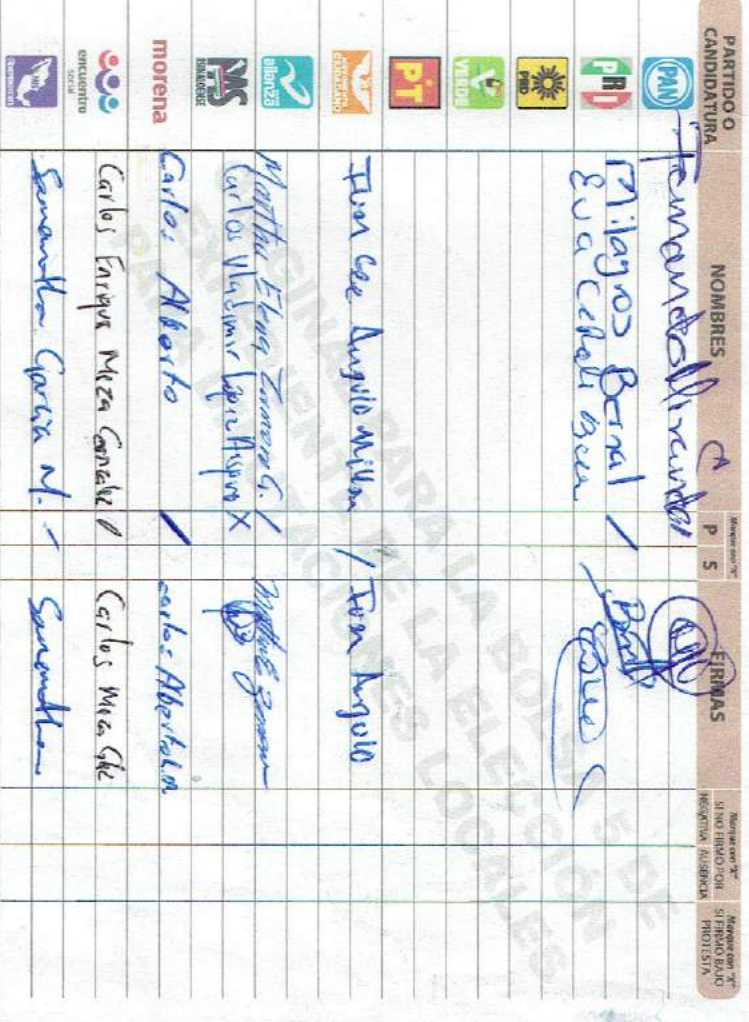 PARTIDO O CANDIDATURA
NOMBRES
Marque con "X"
P S
FIRMAS
Marque con "X" SI NO FIRMÓ POR
NEGATIVA AUSENCIA
Marque con "X" SI FIRMÓ BAJO PROTESTA
PAN
PRI
Milagros Bernal /
Eva
PRD
VERDE
PT
MOVIMIENTO CIUDADANO
Ivan Angulo / Ivan Angulo
alianza
Martha Elena G. /
PMS
Carlos Vladimir López X
morena
Carlos Alberto / Carlos Alberto
encuentro social
Carlos Enrique Meza Gonzalez / Carlos Meza Glz
Samantha Garcia M. / Samantha
ORIGINAL PARA LA BOLSA 5 DE
EXPEDIENTE DE LA ELECCIÓN
PARA LOCALES